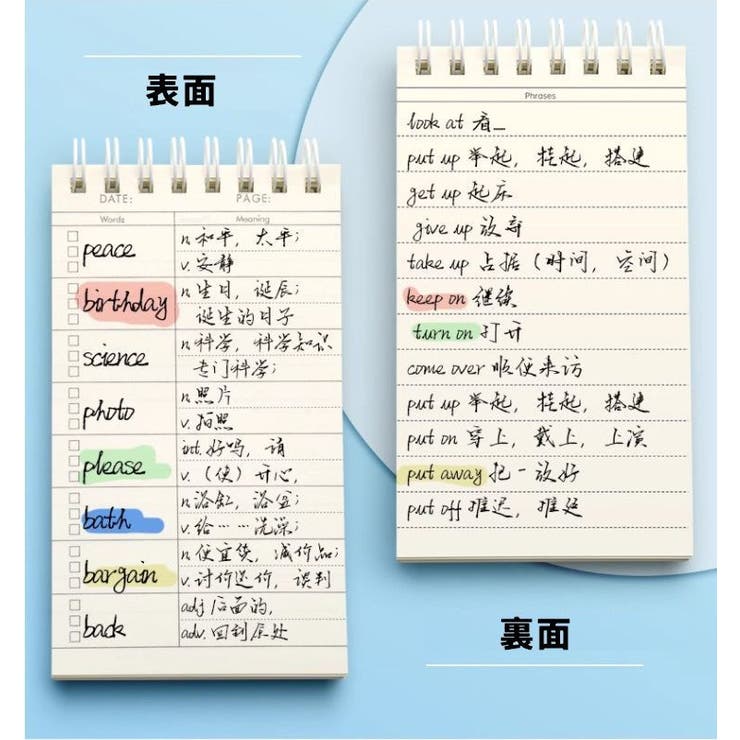 表面
DATE: PAGE:
Words Meaning
peace n.和平，太平；
v.安静
birthday n.生日，诞辰；
诞生的日子
science n.科学，科学知识
专门科学；
photo n.照片
v.拍照
please int.好吗，请
v.（使）开心，
bath n.浴缸，浴室；
v.给……洗澡；
bargain n.便宜货，减价品；
v.讨价还价，误判
back adj后面的，
adv.回到原处
Phrases
look at 看_
put up 举起，挂起，搭建
get up 起床
give up 放弃
take up 占据（时间，空间）
keep on 继续
turn on 打开
come over 顺便来访
put up 举起，挂起，搭建
put on 穿上，戴上，上演
put away 把一放好
put off 推迟，推延
裏面